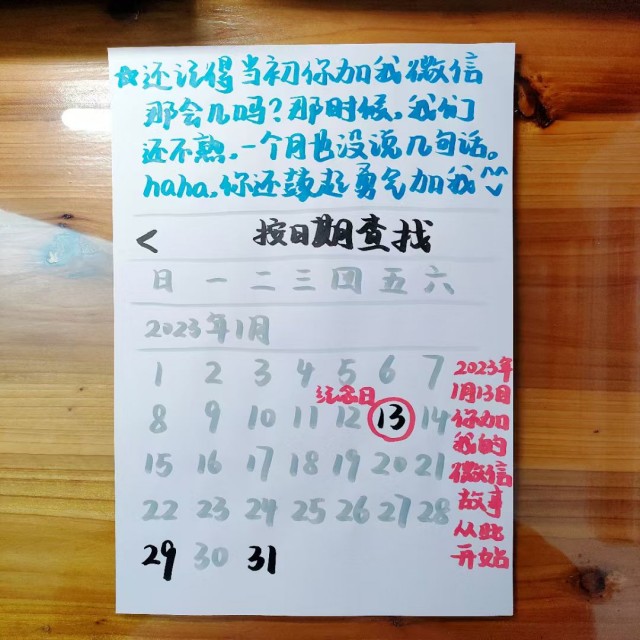 ☆还记得当初你加我微信
那会儿吗？那时候，我们
还不熟，一个月也没说几句话。
haha，你还鼓起勇气加我^^
< 按日期查找
日 一 二 三 四 五 六
2023年1月
1 2 3 4 5 6 7
8 9 10 11 12 13 14
15 16 17 18 19 20 21
22 23 24 25 26 27 28
29 30 31
2023年
1月13日
你加
我的
微信
故事
从此
开始